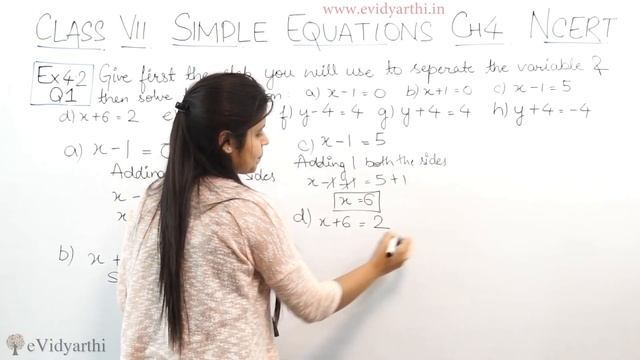 www.evidyarthi.in
CLASS VII SIMPLE EQUATIONS CH4 NCERT
Ex 4.2 Q1
Give first the step you will use to seperate the variable &
then solve : a) x-1=0 b) x+1=0 c) x-1=5
d) x+6=2 f) y-4=4 g) y+4=4 h) y+4=-4
a) x-1=
Adding sides
x-
x
b) x+
c) x-1=5
Adding 1 both the sides
x-1+1=5+1
x=6
d) x+6=2
eVidyarthi